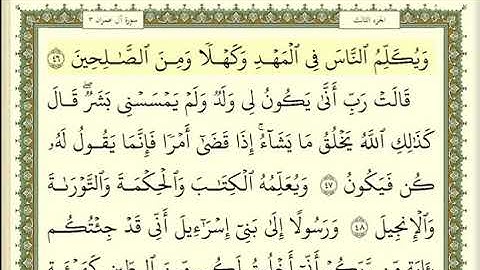 سورة آل عمران ٣
الجزء الثالث
وَيُكَلِّمُ ٱلنَّاسَ فِى ٱلْمَهْدِ وَكَهْلًا وَمِنَ ٱلصَّٰلِحِينَ ٤٦
قَالَتْ رَبِّ أَنَّىٰ يَكُونُ لِى وَلَدٌ وَلَمْ يَمْسَسْنِى بَشَرٌ ۖ قَالَ
كَذَٰلِكِ ٱللَّهُ يَخْلُقُ مَا يَشَآءُ ۚ إِذَا قَضَىٰٓ أَمْرًا فَإِنَّمَا يَقُولُ لَهُۥ
كُن فَيَكُونُ ٤٧ وَيُعَلِّمُهُ ٱلْكِتَٰبَ وَٱلْحِكْمَةَ وَٱلتَّوْرَىٰةَ
وَٱلْإِنجِيلَ ٤٨ وَرَسُولًا إِلَىٰ بَنِىٓ إِسْرَٰٓءِيلَ أَنِّى قَدْ جِئْتُكُم